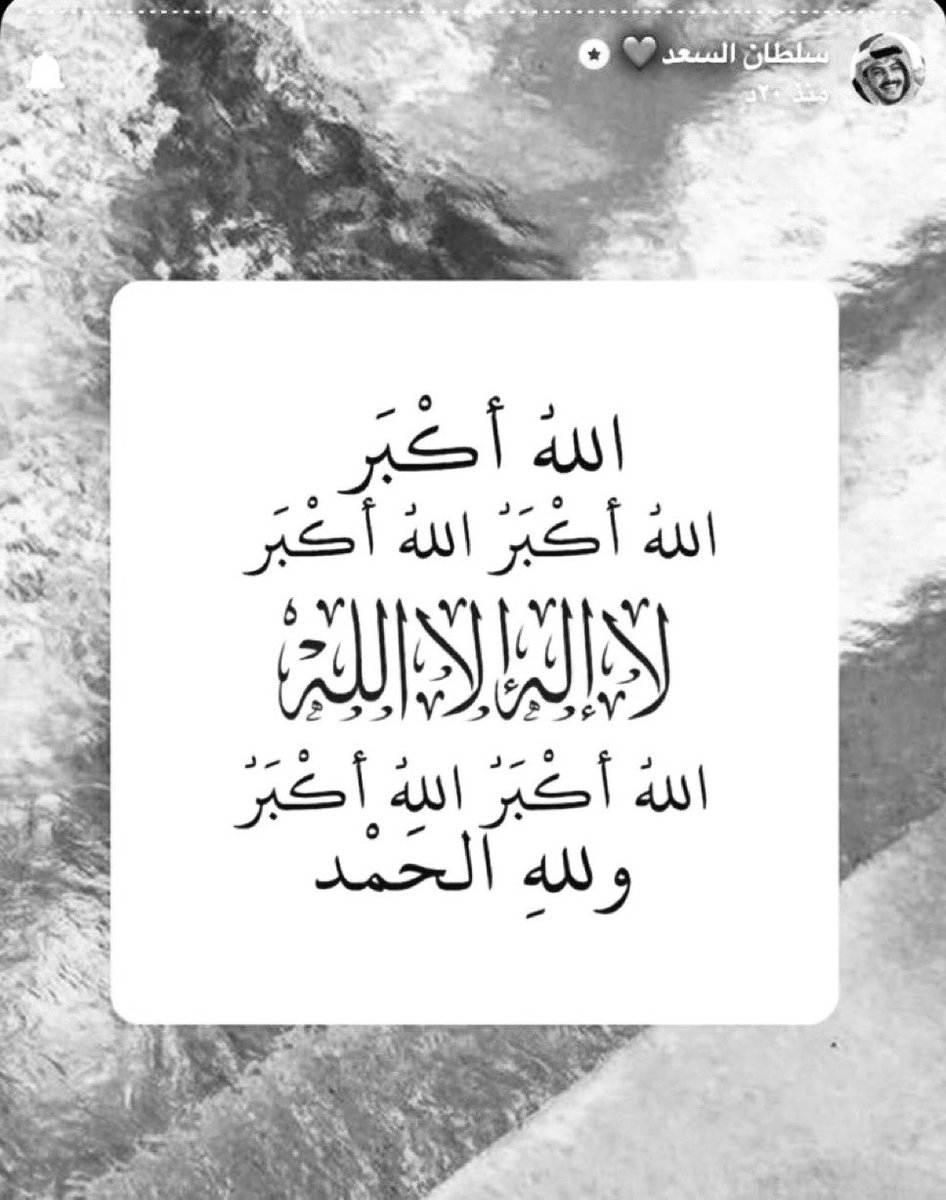 سلطان السعد
منذ ٢٠د
اللهُ أَكْبَر
اللهُ أَكْبَرُ اللهُ أَكْبَر
لا إله إلا الله
اللهُ أَكْبَرُ اللهُ أَكْبَرُ
وللهِ الحَمْد